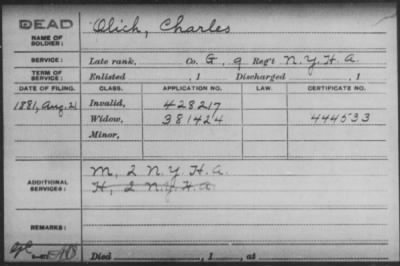 DEAD
NAME OF SOLDIER: Olich, Charles
SERVICE: Late rank, Co. G, 9 Reg't N.Y.H.A.
TERM OF SERVICE: Enlisted , 1 Discharged , 1
DATE OF FILING. CLASS. APPLICATION NO. LAW. CERTIFICATE NO.
1881, Aug. 2 Invalid, 428217
Widow, 381424 444533
Minor,
ADDITIONAL SERVICES: M, 2 N.Y.H.A.
H, 2 N.Y.H.A.
REMARKS:
Died , 1 , at